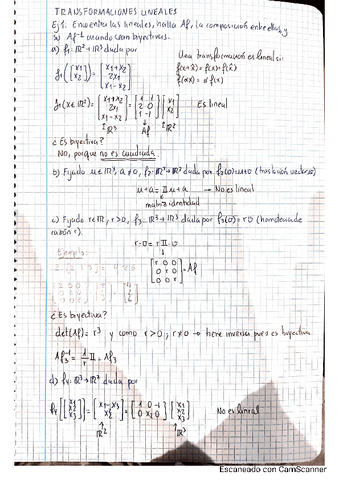 TRANSFORMACIONES LINEALES
Ej 1. Encuentra las lineales, halla Af, la composición entre ellas y
Af⁻¹ cuando sean biyectivas.
a) f₁: ℝ² → ℝ³ dada por
Una transformación es lineal si:
f₁([x₁ x₂]) = [x₁+x₂ 2x₁ x₁-x₂]
f(αx) = αf(x)
f₁(x∈ℝ²) = [x₁+x₂ 2x₁ x₁-x₂] = [1 1 2 0 1 -1] [x₁ x₂] Es lineal
ℝ³ Af ℝ²
¿Es biyectiva?
NO, porque no es cuadrada
b) Fijado u∈ℝ³, f₂: ℝ³→ℝ³ dada por f₂(v)=u+v (traslación vectores)
→ No es lineal
matriz identidad
c) Fijado r∈ℝ, r>0, f₃: ℝ³→ℝ³ dada por f₃(v) = rv (homotecia de
razón r).
r·v = r𝕀·v
Ejemplo:
[r 0 0 0 r 0 0 0 r] = Af
¿Es biyectiva?
det(Af) = r³ y como r>0, r≠0 → tiene inversa pues es biyectiva
Af₃⁻¹ = 1/r 𝕀 = Af₃
d) f₄: ℝ³→ℝ² dada por
f₄([x₁ x₂ x₃]) = = [1 0 -1 0 x₁ 0] [x₁ x₂ x₃] No es lineal
ℝ² ℝ³
Escaneado con CamScanner